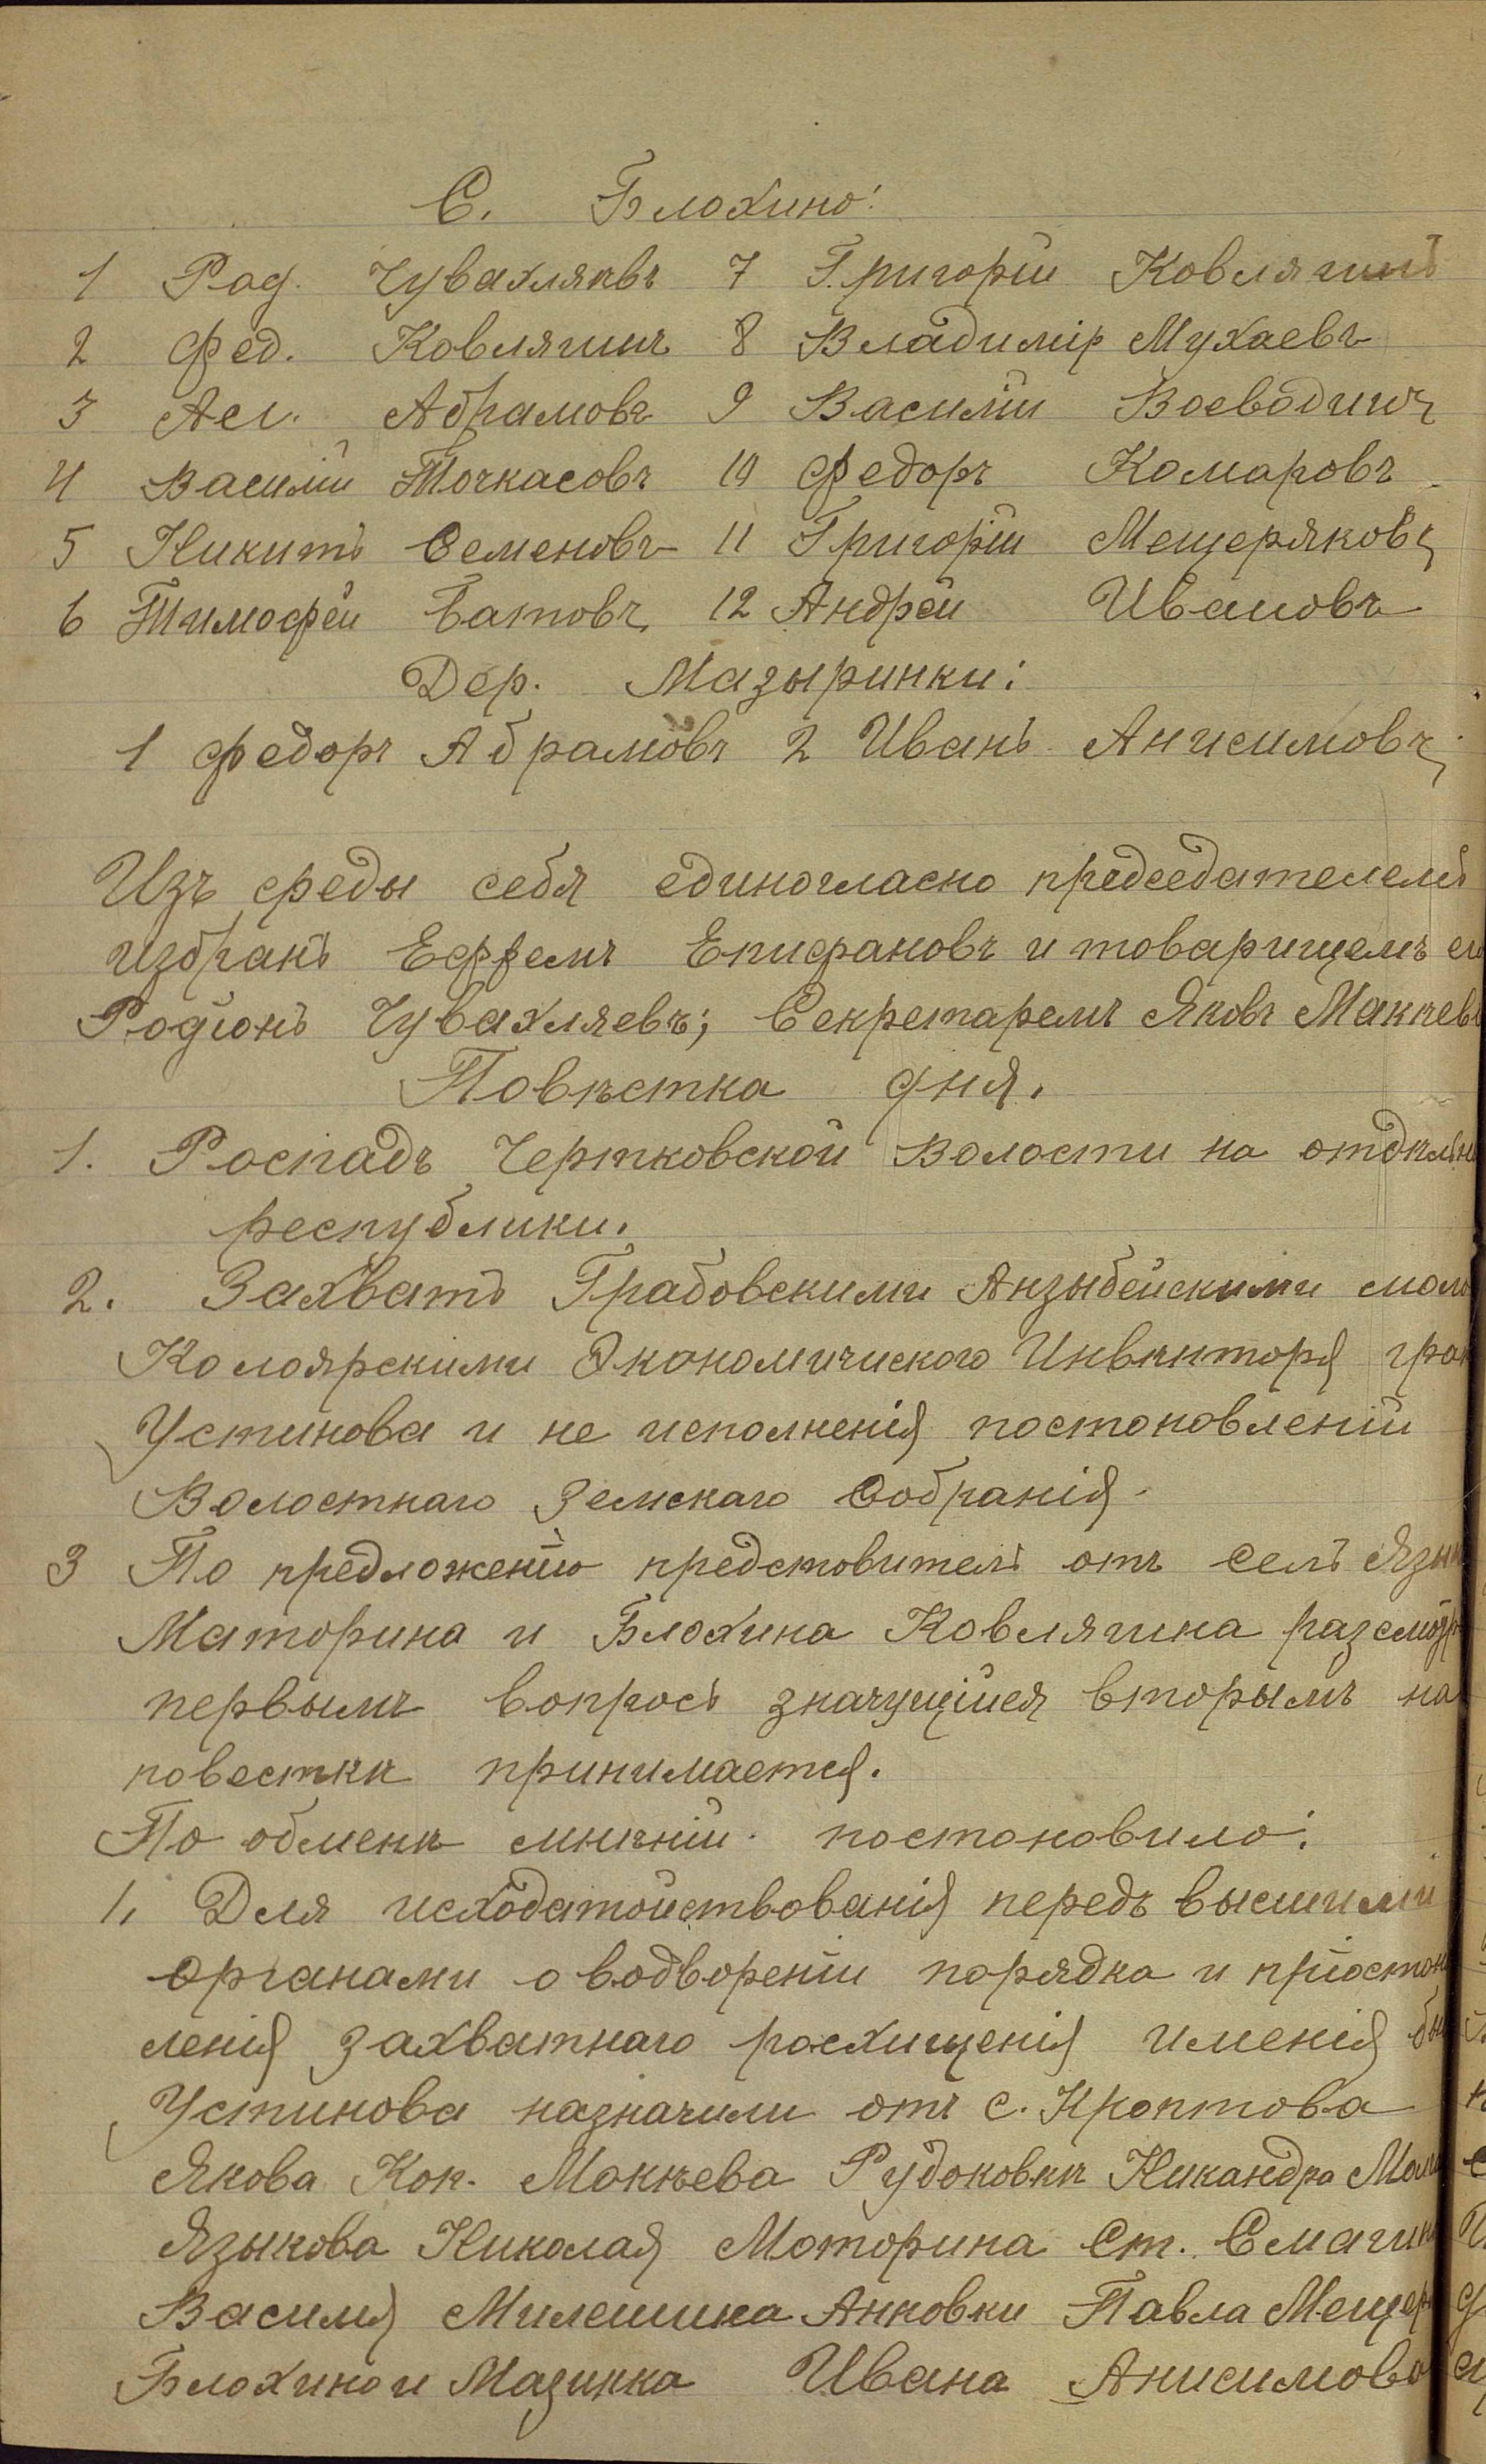 С. Блохино:
1 Род. Чувахляквъ 7 Григорій Ковлягинъ
2 Фед. Ковлягинъ 8 Владимір Мухаевъ
3 Ал. Абрамовъ 9 Василій Воеводинъ
4 Василій Точкасовъ 10 Федоръ Комаровъ
5 Никитъ Семеновъ 11 Григорій Мещеряковъ
6 Тимофей Батовъ 12 Андрей Ивановъ
Дер. Мазыринки:
1 Федоръ Абрамовъ 2 Иванъ Анисимовъ.
Изъ среды себя единогласно председателемъ
избранъ Ефремъ Епифановъ и товарищемъ его
Родіонъ Чувахляевъ; Секретаремъ Яковъ Макѣевъ
Повѣстка дня.
1. Роспадъ Чертковской Волости на отдѣльн
республики.
2. Захватъ Грабовскими Анзыбейскими мало
Колоярскими Экономичиского Инвѣнторя гра
Устинова и не исполненія постоновленій
Волостнаго Земскаго Собранія.
3 По предложенію предстовитель отъ селъ Язык
Маторина и Блохина Ковлягина разсмотр
первымъ вопросъ значущійся вторымъ на
повесткѣ принимается.
По обменѣ мнѣній постоновило:
1. Для исходатойствованія передъ высшими
органами о водвореніи порядка и пріостон
ленія захватнаго росхищенія именія бы
Устинова назначили отъ с. Кроптова
Якова Кон. Мокѣева Рудоковки Никандра Мал
Языкова Николая Моторина Ст. Смагин
Василія Милешина Анновки Павла Мещер
Блохино и Мазинка Ивана Анисимова